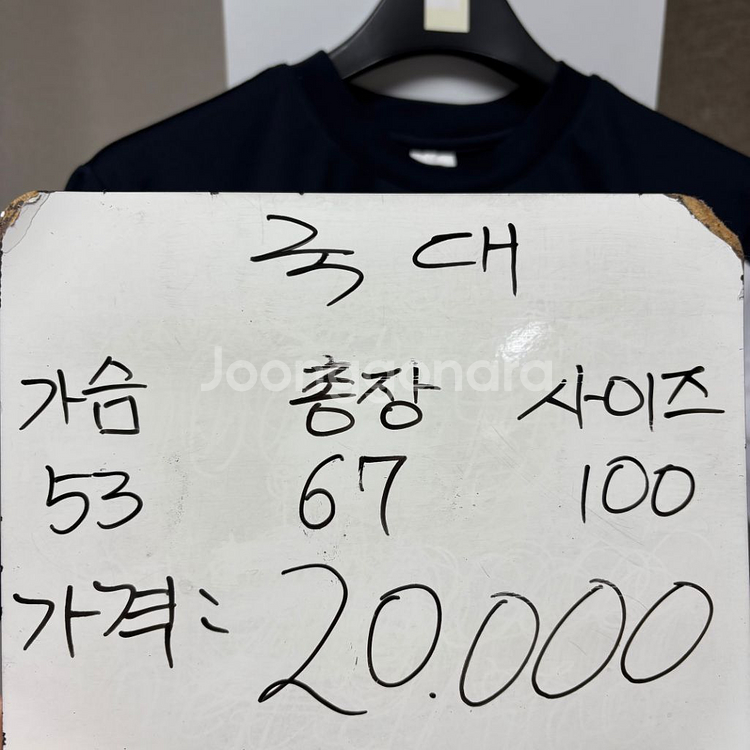 국대
가슴 총장 사이즈
Joonggonara
53 67 100
가격: 20.000